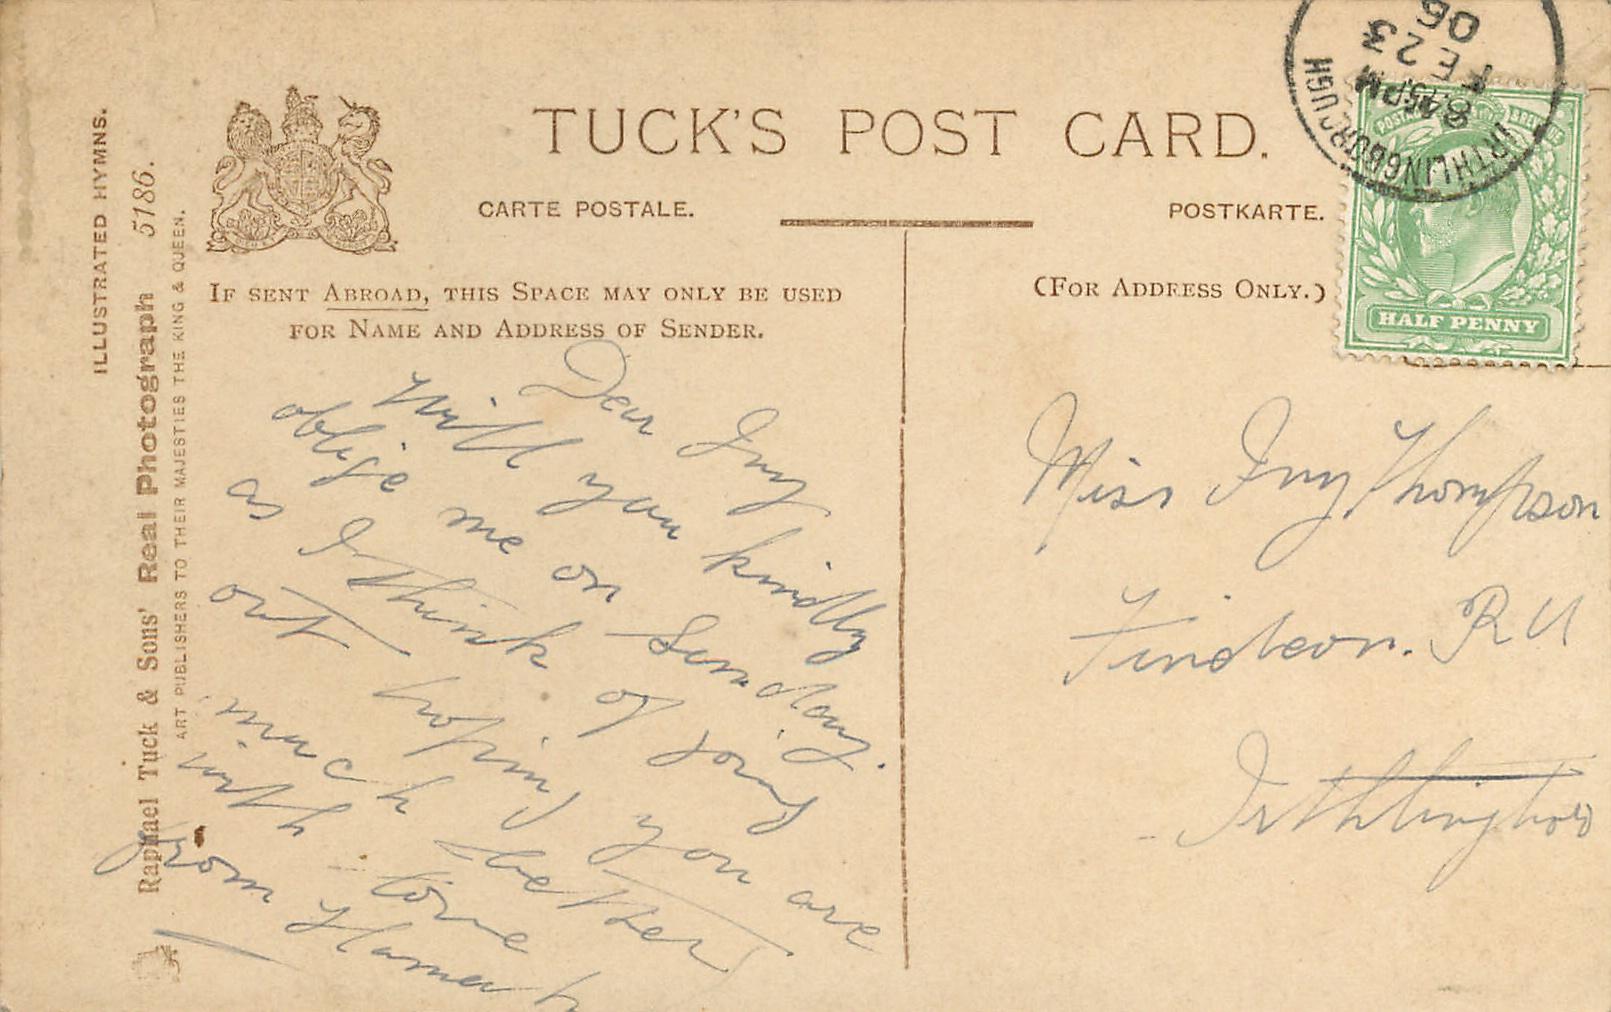 ILLUSTRATED HYMNS.
Raphael Tuck & Sons' Real Photograph 5186.
ART PUBLISHERS TO THEIR MAJESTIES THE KING & QUEEN.
TUCK'S POST CARD.
CARTE POSTALE.
POSTKARTE.
IF SENT ABROAD, THIS SPACE MAY ONLY BE USED
FOR NAME AND ADDRESS OF SENDER.
(FOR ADDRESS ONLY.)
IRTHLINGBOROUGH
8 45 PM
FE 23
06
HALF PENNY
Dear Ivy
Will you kindly
oblige me on Sunday.
as I think of going
out hoping you are
much better
with love
from
Miss Ivy Thompson
Findeon. Rd
Irthlingboro